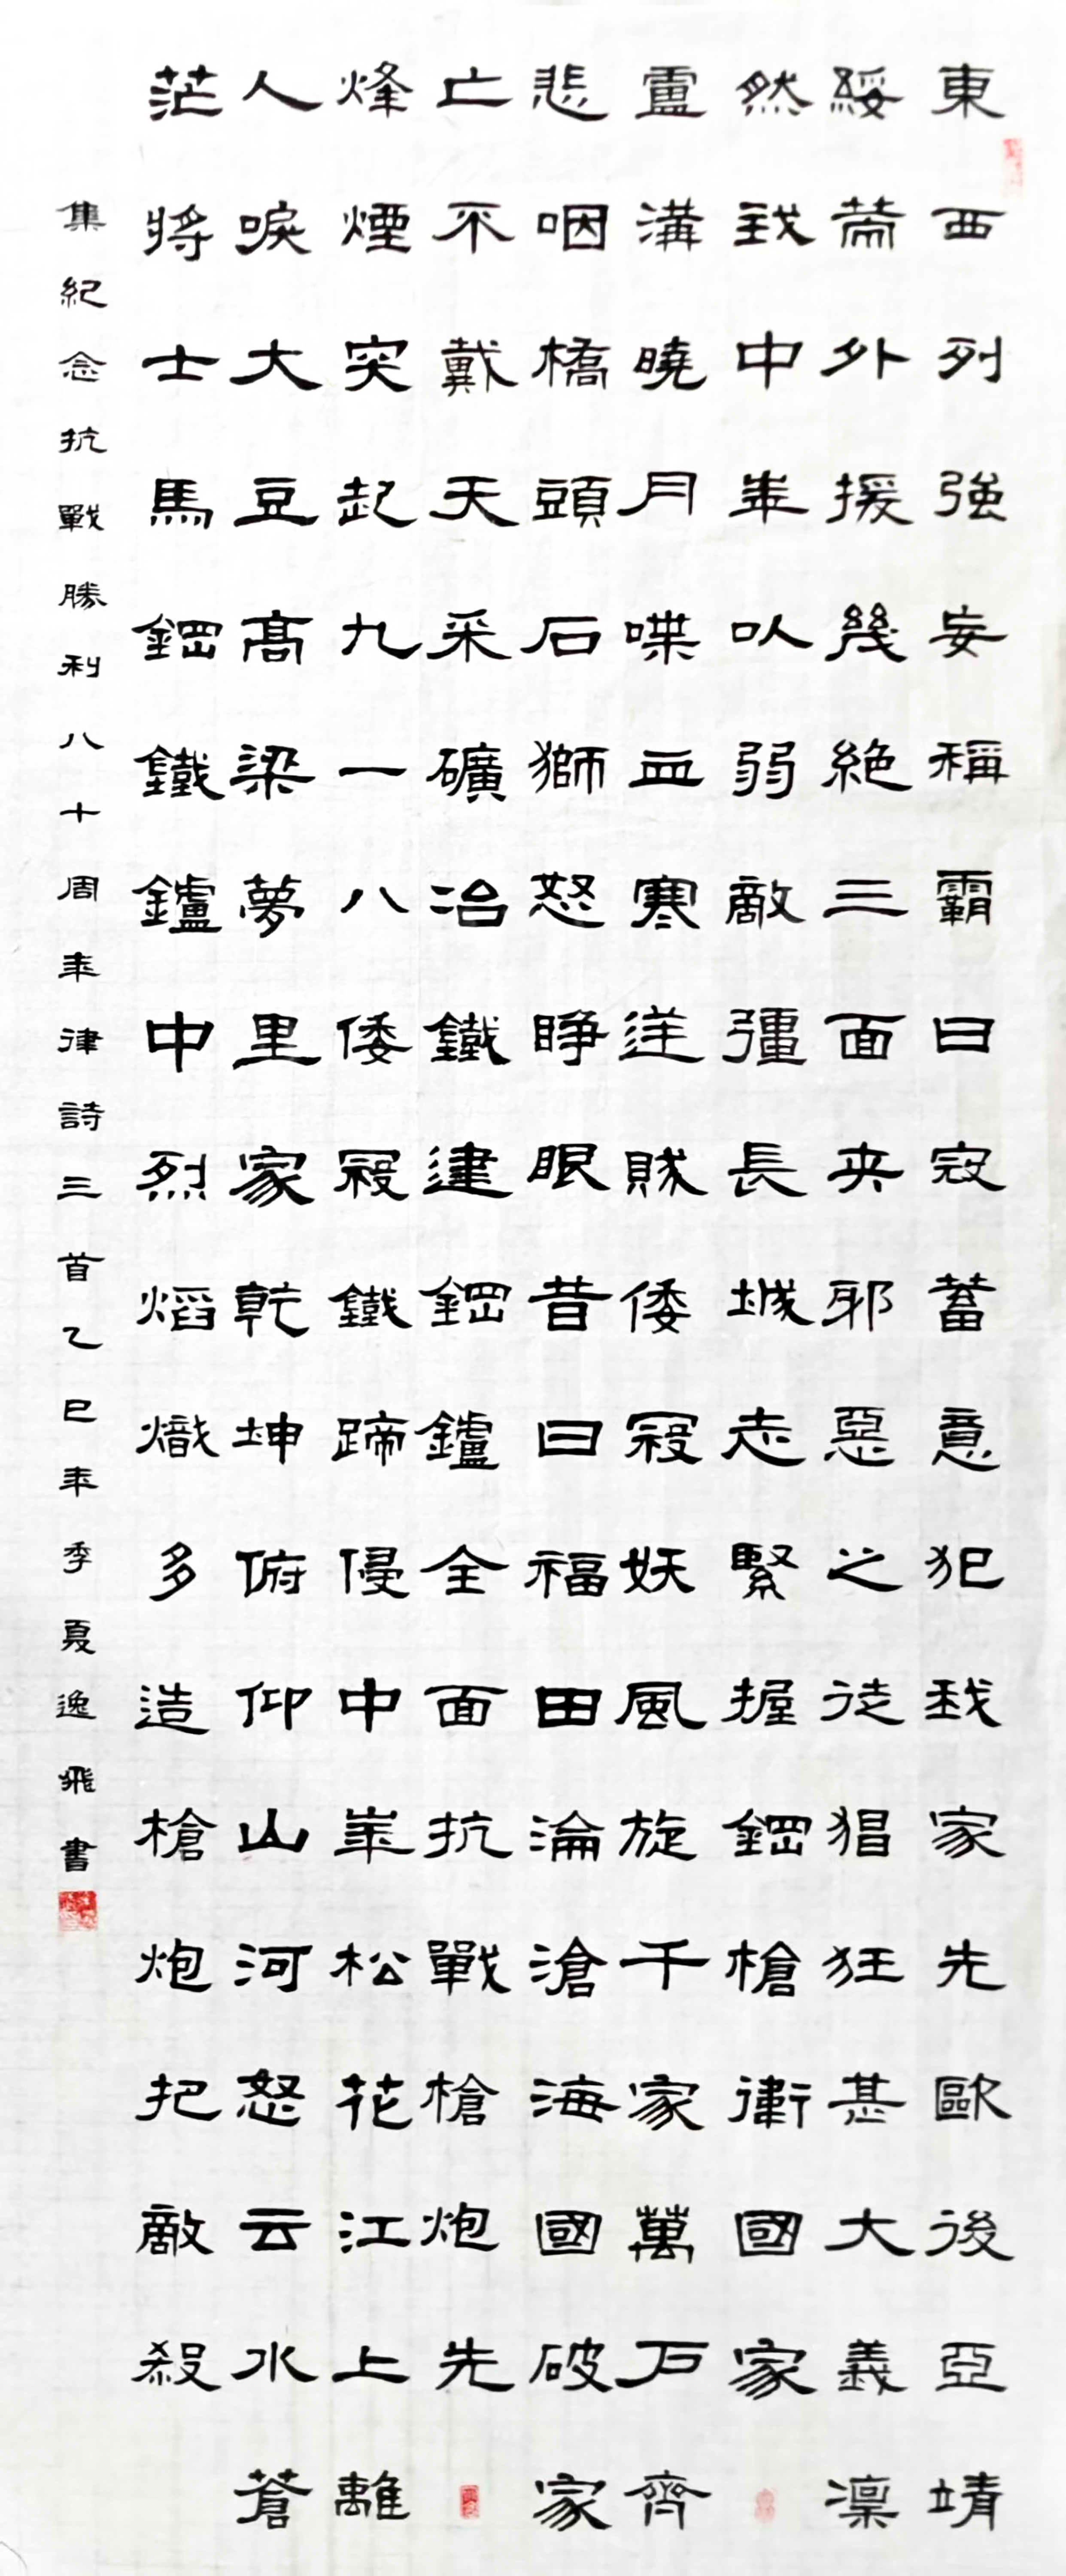 東西列強妄稱霸日寇蓄意犯我家先歐後亞靖
綏外援幾絕三面夾邪惡之徒猖狂甚大義凜
然我中華以弱敵彊長城志緊握鋼槍衛國家
盧溝曉月喋血寒逆賊倭寇妖風旋千家萬戶齊
悲咽橋頭石獅怒睜眼昔日福田淪滄海國破家
亡不戴天采礦冶鐵建鋼鑪全面抗戰槍炮先
烽煙突起九一八倭寇鐵蹄侵中華松花江上離
人唳大豆高粱夢里家乾坤俯仰山河怒云水蒼
茫將士馬鋼鐵鑪中烈焰熾多造槍炮把敵殺
集紀念抗戰勝利八十周年律詩三首乙巳年季夏逸飛書